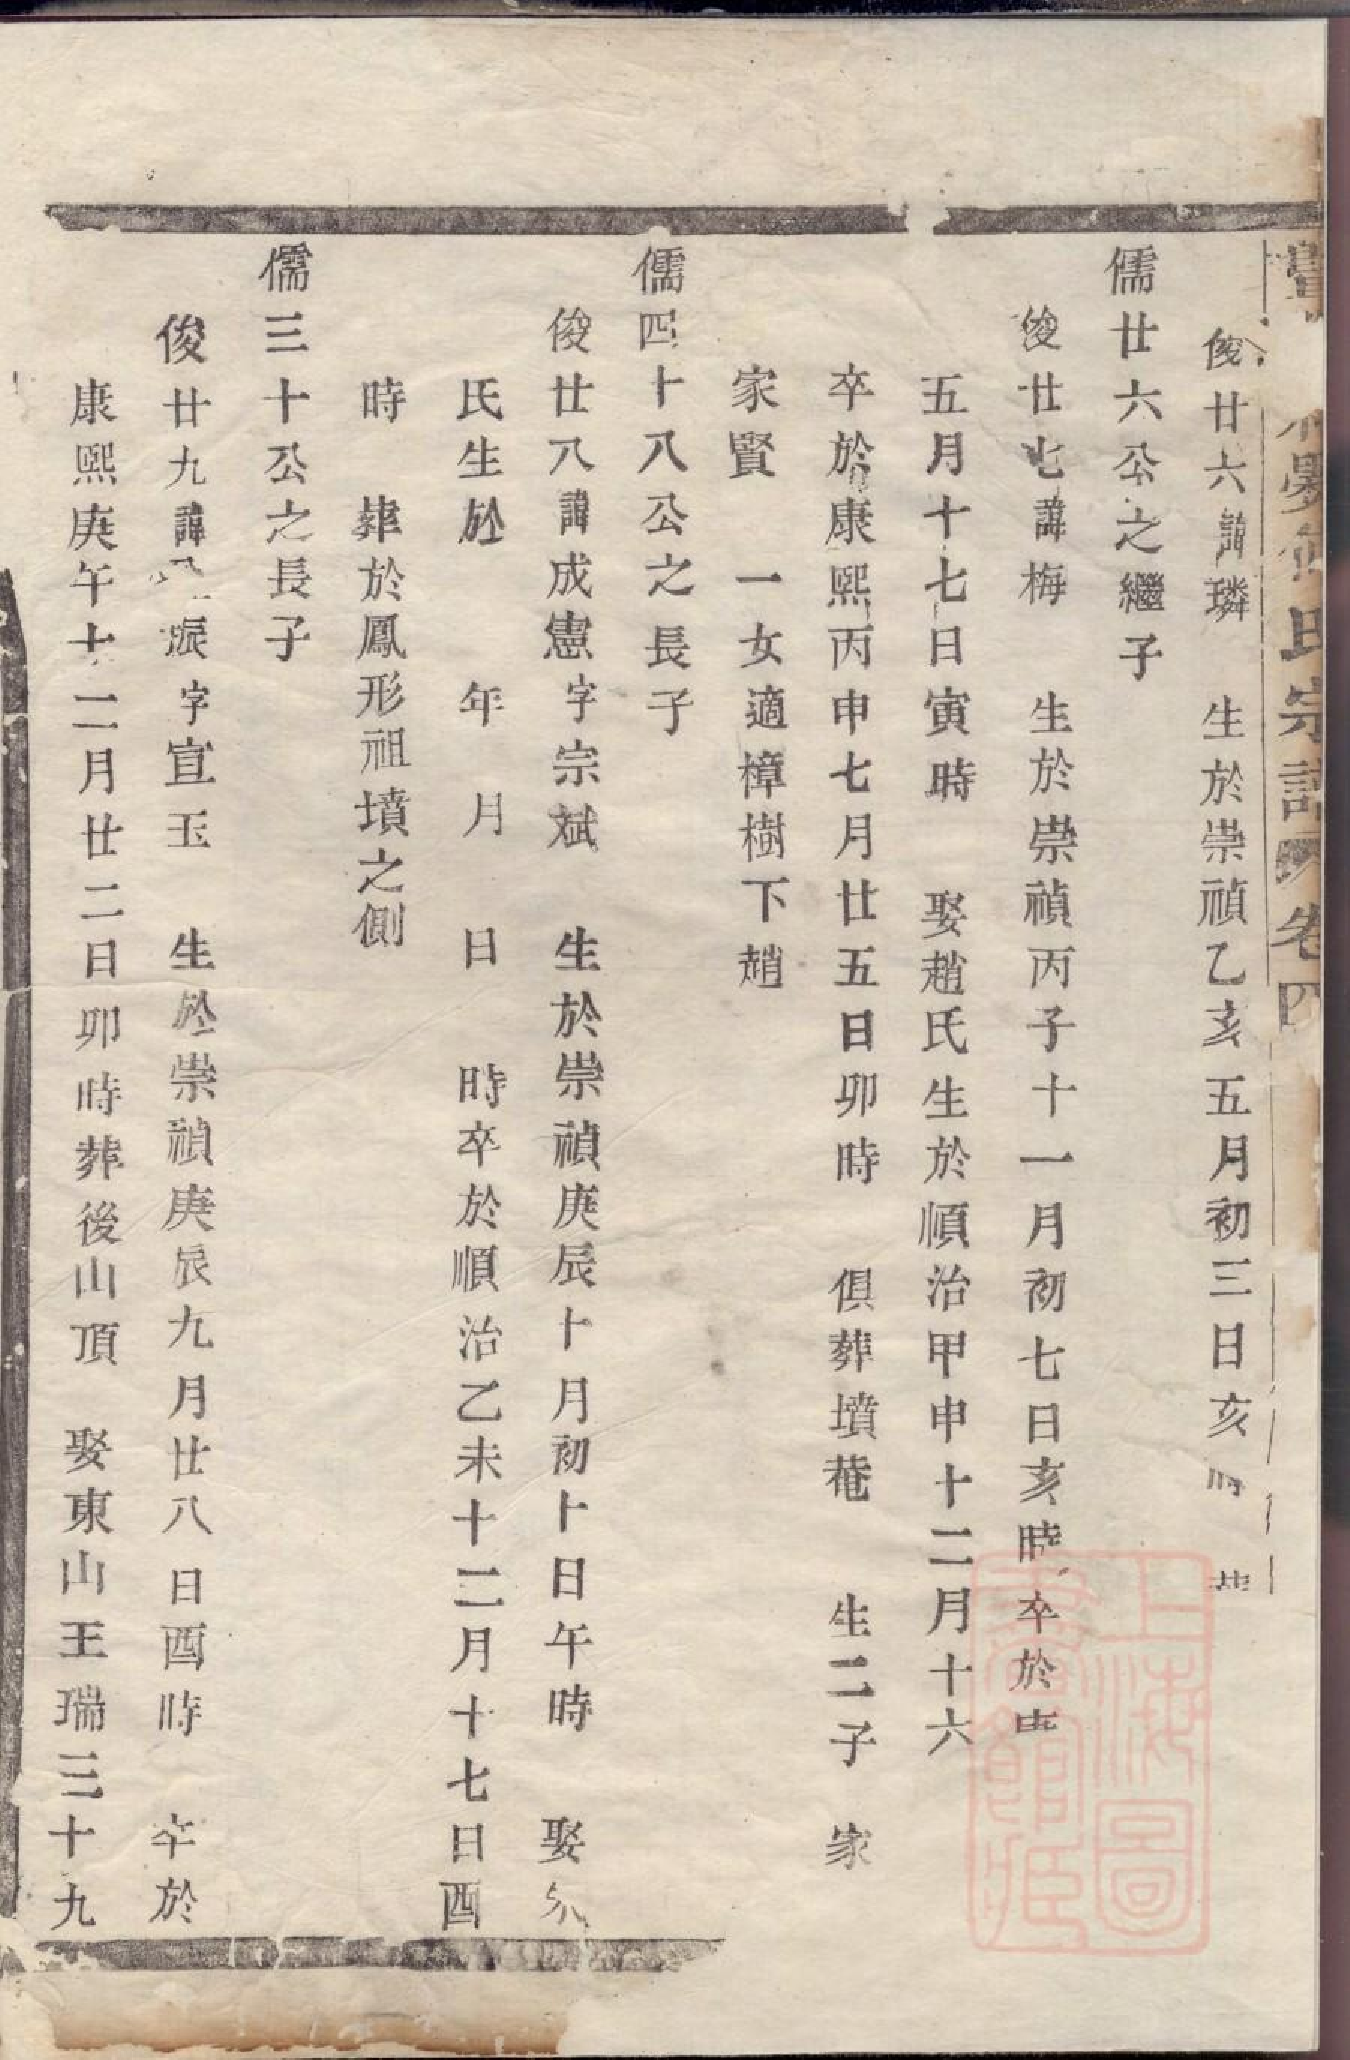 氏宗譜 卷四
俊廿六諱璘 生於崇禎乙亥五月初三日亥時 葬
儒廿六公之繼子
俊廿七諱梅 生於崇禎丙子十一月初七日亥時卒於康
五月十七日寅時 娶趙氏生於順治甲申十二月十六
卒於康熙丙申七月廿五日卯時 俱葬墳菴 生二子 家
家賢 一女適樟樹下趙
儒四十八公之長子
俊廿八諱成憲字宗斌 生於崇禎庚辰十月初十日午時 娶
氏生於 年 月 日 時卒於順治乙未十二月十七日酉
時 葬於鳳形祖墳之側
儒三十公之長子
俊廿九諱 字宣玉 生於崇禎庚辰九月廿八日酉時 卒於
康熙庚午十二月廿二日卯時葬後山頂 娶東山王瑞三十九
上海圖書館藏